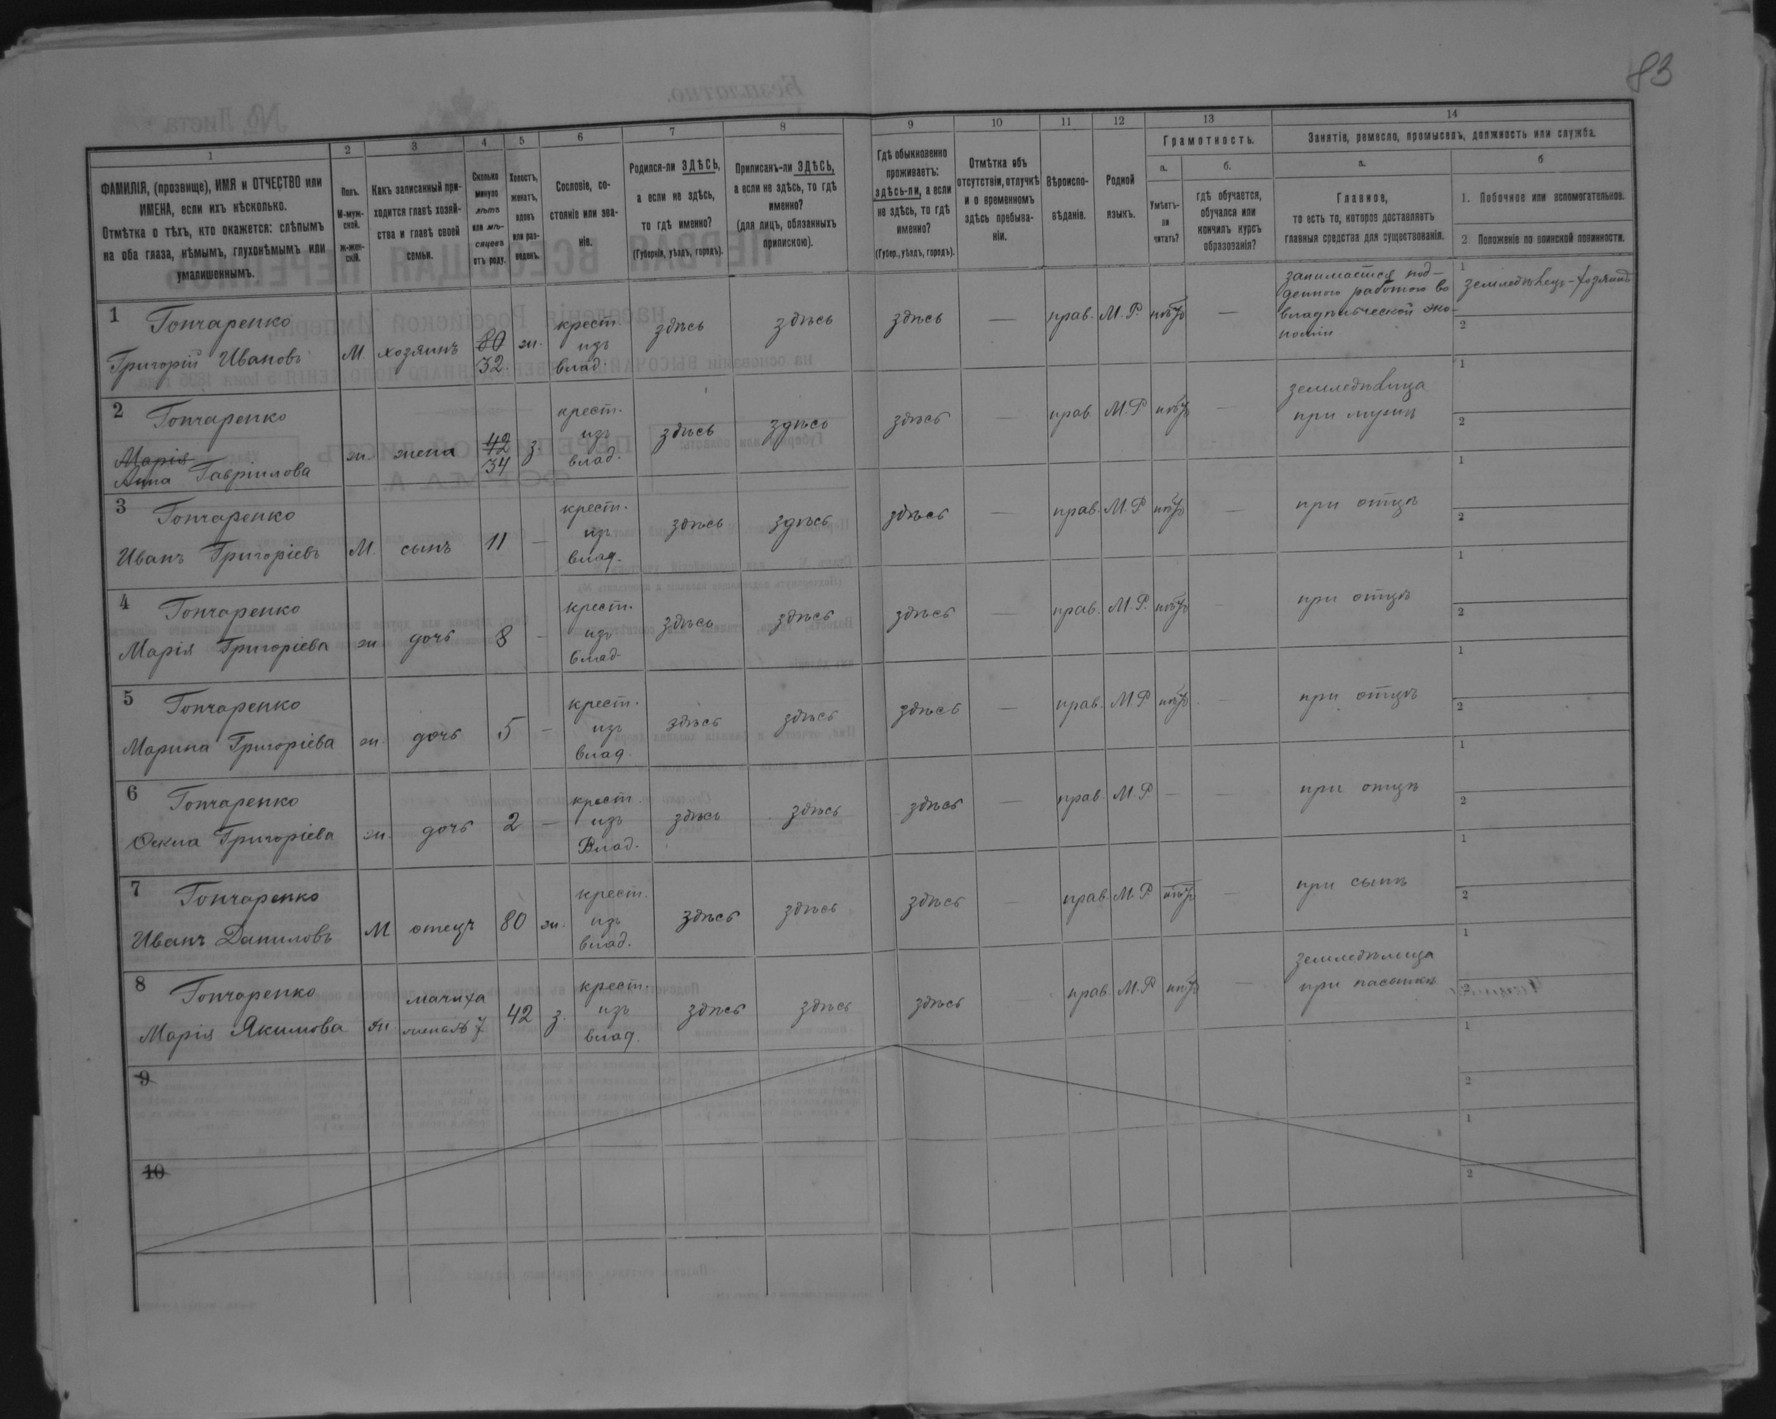 83
1 2 3 4 5 6 7 8 9 10 11 12 13 14
ФАМИЛІЯ, (прозвище), ИМЯ и ОТЧЕСТВО или
ИМЕНА, если ихъ нѣсколько.
Отмѣтка о тѣхъ, кто окажется: слѣпымъ
на оба глаза, нѣмымъ, глухонѣмымъ или
умалишеннымъ.
Полъ.
М-муж-
ской.
Ж-жен-
скій.
Какъ записанный при-
ходится главѣ хозяй-
ства и главѣ своей
семьи.
Сколько
минуло
лѣтъ
или мѣ-
сяцевъ
отъ роду.
Холостъ,
женатъ,
вдовъ
или раз-
веденъ.
Сословіе, со-
стояніе или зва-
ніе.
Родился-ли ЗДѢСЬ,
а если не здѣсь,
то гдѣ именно?
(Губернія, уѣздъ, городъ).
Приписанъ-ли ЗДѢСЬ,
а если не здѣсь, то гдѣ
именно?
(для лицъ, обязанныхъ
припискою).
Гдѣ обыкновенно
проживаетъ:
здѣсь-ли, а если
не здѣсь, то гдѣ
именно?
(Губер., уѣздъ, городъ).
Отмѣтка объ
отсутствіи, отлучкѣ
и о временномъ
здѣсь пребыва-
ніи.
Вѣроиспо-
вѣданіе.
Родной
языкъ.
Грамотность.
а.
Умѣетъ-
ли
читать?
б.
гдѣ обучается,
обучался или
кончилъ курсъ
образованія?
Занятіе, ремесло, промыселъ, должность или служба.
а.
Главное,
то есть то, которое доставляетъ
главныя средства для существованія.
б
1. Побочное или вспомогательное.
2 Положеніе по воинской повинности.
1 Гончаренко
Григорій Ивановъ
М. хозяинъ 80 32 ж. крест. изъ влад. здѣсь здѣсь здѣсь — прав. М. Р. нѣтъ —
занимается под-
денною работою во
владѣльческой эко-
номіи
1 земледѣлецъ-хозяинъ
2
2 Гончаренко
Марія
Анна Гаврилова
ж. жена 42 34 з. крест. изъ влад. здѣсь здѣсь здѣсь — прав. М. Р. нѣтъ —
земледѣлица
при мужѣ
1
2
3 Гончаренко
Иванъ Григоріевъ
М. сынъ 11 — крест. изъ влад. здѣсь здѣсь здѣсь — прав. М. Р. нѣтъ — при отцѣ
1
2
4 Гончаренко
Марія Григоріева
ж. дочь 8 — крест. изъ влад. здѣсь здѣсь здѣсь — прав. М. Р. нѣтъ — при отцѣ
1
2
5 Гончаренко
Марина Григоріева
ж. дочь 5 — крест. изъ влад. здѣсь здѣсь здѣсь — прав. М. Р. нѣтъ — при отцѣ
1
2
6 Гончаренко
Григоріева
ж. дочь 2 — крест. изъ Влад. здѣсь здѣсь здѣсь — прав. М. Р. — — при отцѣ
1
2
7 Гончаренко
Иванъ Даниловъ
М отецъ 80 ж. крест. изъ влад. здѣсь здѣсь здѣсь прав. М. Р. нѣтъ — при сынѣ
1
2
8 Гончаренко
Марія Якимова
ж мачиха 42 з. крест. изъ влад. здѣсь здѣсь здѣсь прав. М. Р нѣтъ —
земледѣлица
при пасынкѣ
1
2
9
1
2
10
1
2